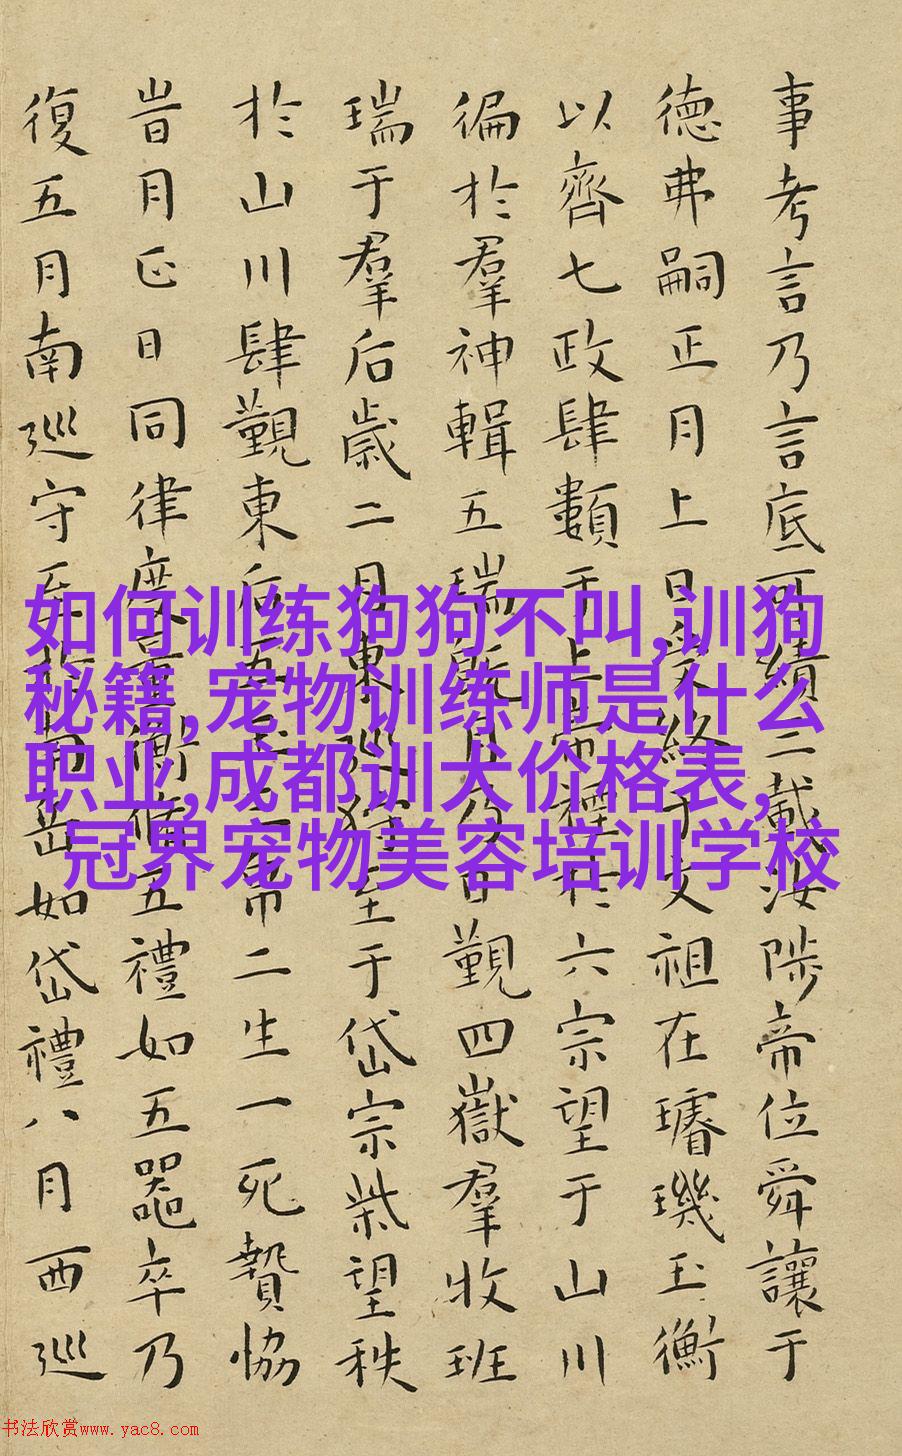 事考言乃言底可績三載汝陟帝位舜讓于
德弗嗣正月上日受終于文祖在璿璣玉衡
以齊七政肆類于上帝禋於六宗望于山川
徧於羣神輯五瑞既月乃日覲四嶽羣牧班
瑞于羣后歲二月東巡狩至于岱宗柴望秩
於山川肆覲東后五玉三帛二生一死贄協
旹月正日同律度量衡脩五禮如五器卒乃
復五月南巡守至於南岳如岱禮八月西巡
如何训练狗狗不叫,训狗
秘籍,宠物训练师是什么
职业,成都训犬价格表,
冠界宠物美容培训学校
书法欣赏www.yac8.com